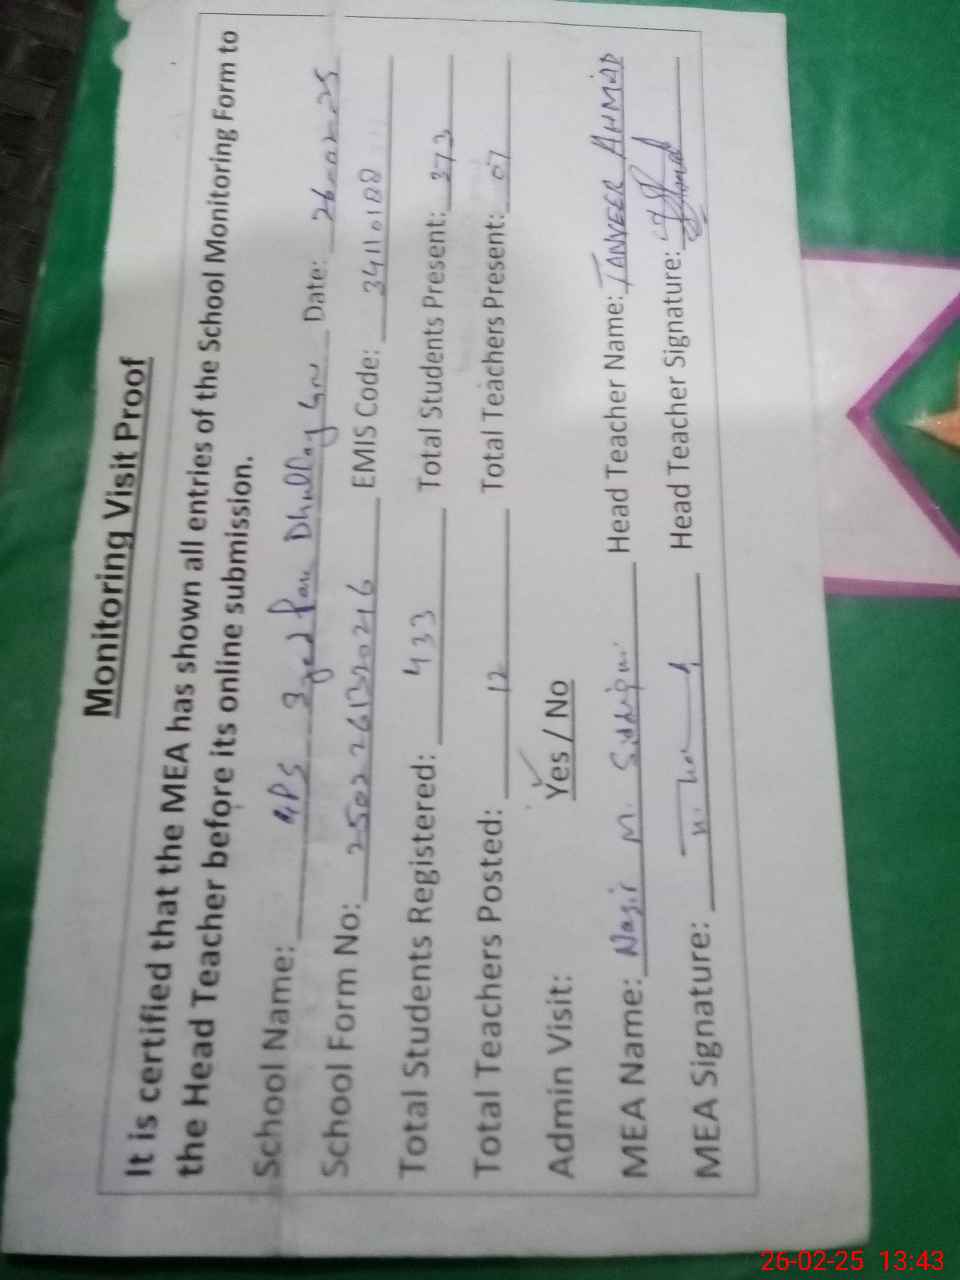 Monitoring Visit Proof
It is certified that the MEA has shown all entries of the School Monitoring Form to
the Head Teacher before its online submission.
School Name: GPS Dhullay Date: 26-02-25
School Form No: EMIS Code: 34110188
Total Students Registered: 433 Total Students Present: 373
Total Teachers Posted: 12 Total Teachers Present: 07
Admin Visit: Yes / No
MEA Name: Nasir M. Siddiqui Head Teacher Name: TANVEER AHMAD
MEA Signature: Head Teacher Signature:
26-02-25 13:43